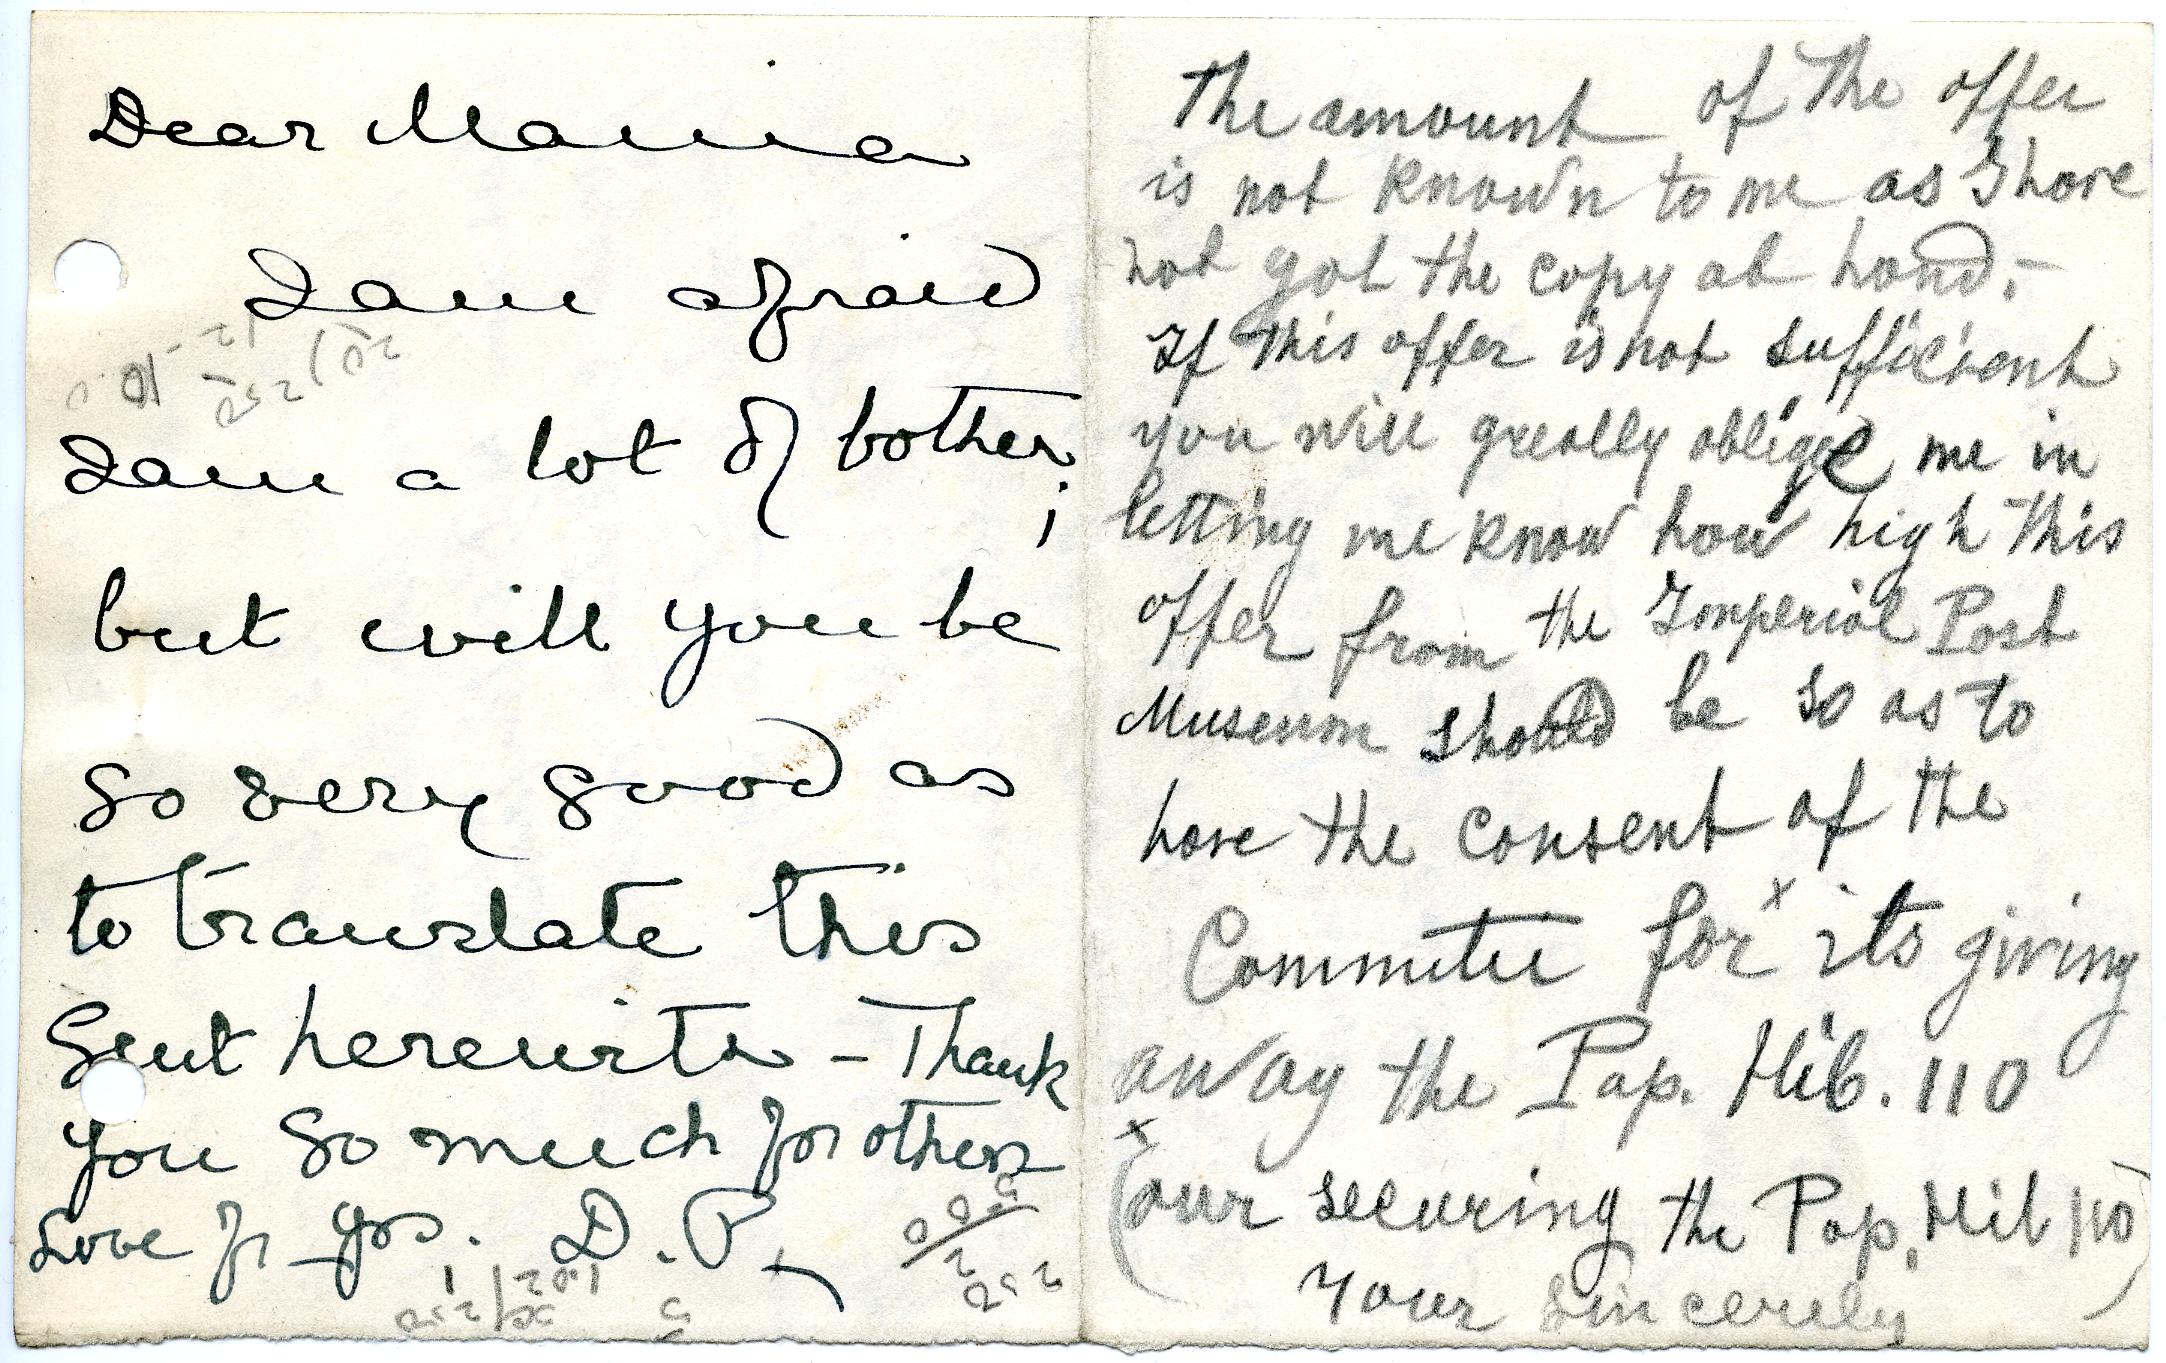 Dear Marina
I am afraid
I am a lot of bother;
but will you be
so very good as
to translate this
Sent herewith – Thank
you so much for others
Love fr yrs. D. P.
The amount of the offer
is not known to me as I have
not got the copy at hand.–
If this offer is not sufficient
you will greatly oblige me in
letting me know how high this
offer from the Imperial Post
Museum should be so as to
have the consent of the
Commitee for x its giving
away the Pap. Hib. 110
x
(our securing the Pap. Hib 110)
Your Sincerely